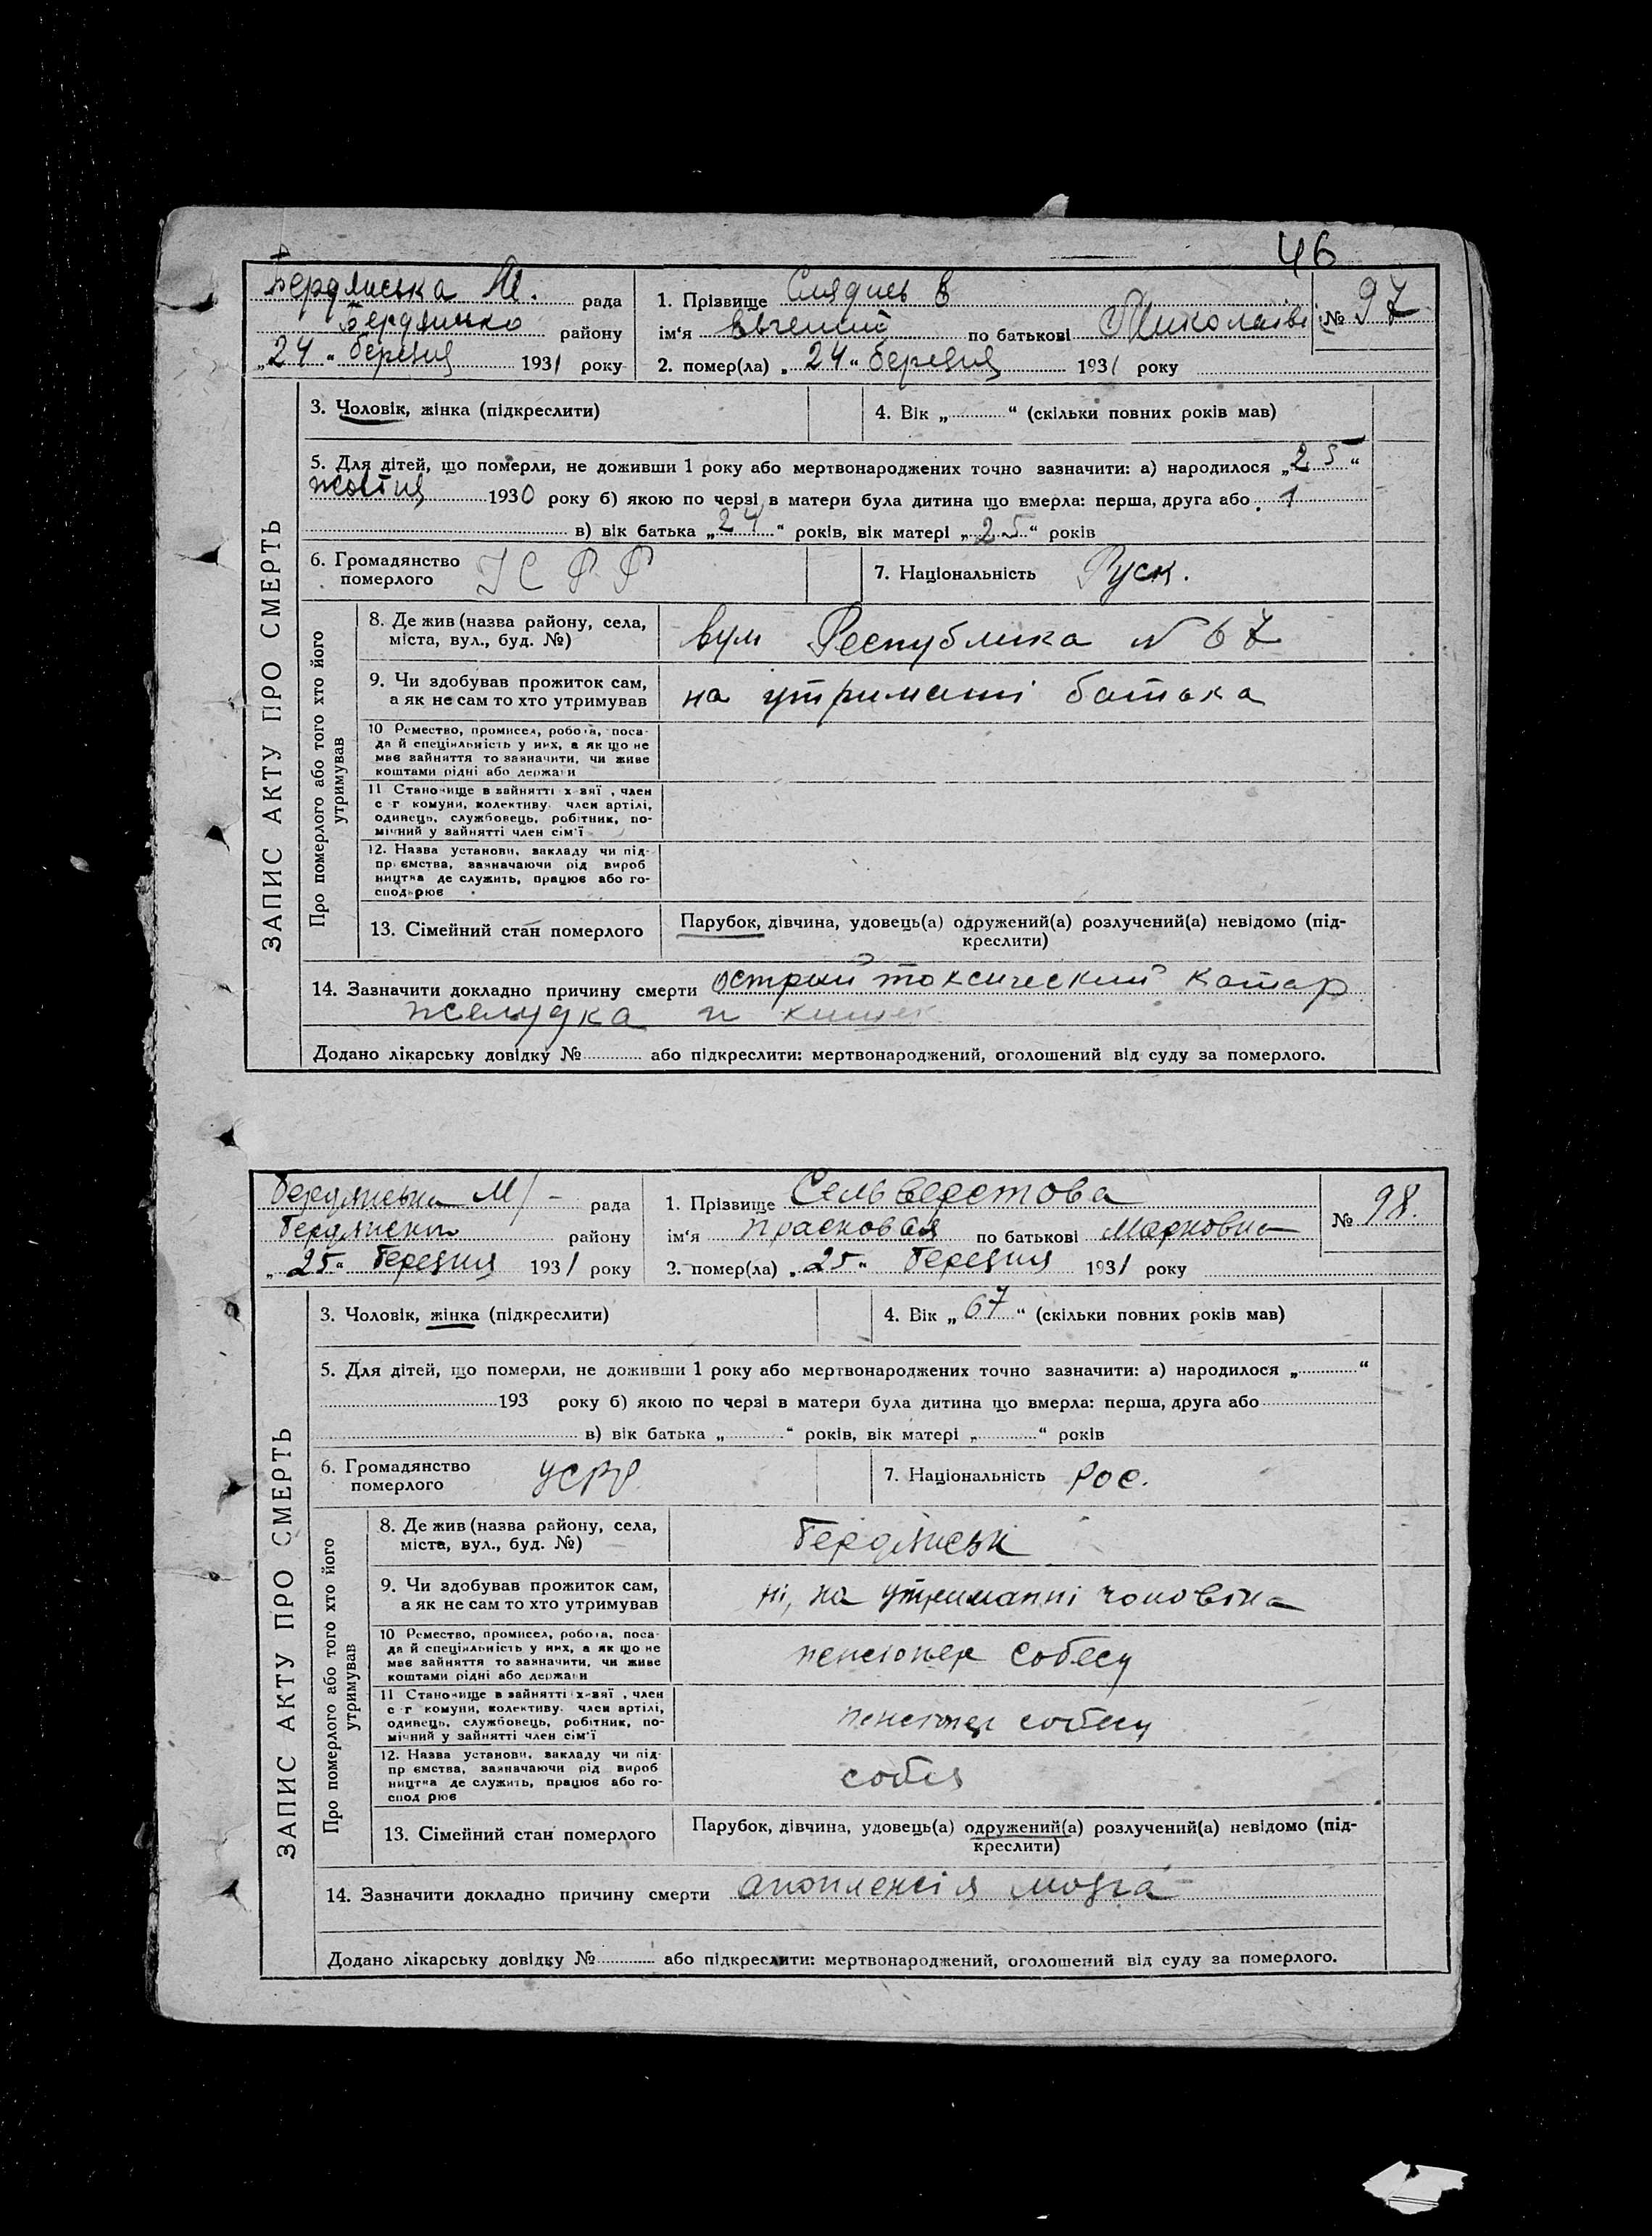 46
Бердянська М. рада
Бердянсько району
„24“ березня 1931 року
1. Прізвище
ім‘я Євгений по батькові Миколаїв
№ 97
2. помер(ла) „24“ березня 1931 року
ЗАПИС АКТУ ПРО СМЕРТЬ
3. Чоловік, жінка (підкреслити)
4. Вік „ “ (скільки повних років мав)
5. Для дітей, що померли, не доживши 1 року або мертвонароджених точно зазначити: а) народилося „25“
жовтня 1930 року б) якою по черзі в матери була дитина що вмерла: перша, друга або 1
в) вік батька „24“ років, вік матері „25“ років
6. Громадянство
померлого
УСРР
7. Національність Руск.
Про померлого або того хто його
утримував
8. Де жив (назва району, села,
міста, вул., буд. №)
вул Республіка N 67
9. Чи здобував прожиток сам,
а як не сам то хто утримував
на утриманні батька
10 Ремество, промисел, робота, поса-
да й спеціяльність у них, а як що не
має зайняття то зазначити, чи живе
коштами рідні або держави
11 Становище в зайнятті х-вяї, член
с г комуни, колективу. член артілі,
одинець, службовець, робітник, по-
мічний у зайнятті член сім‘ї
12. Назва установи, закладу чи під-
приємства, зазначаючи рід вироб
ництва де служить, працює або го-
сподарює
13. Сімейний стан померлого
Парубок, дівчина, удовець(а) одружений(а) розлучений(а) невідомо (під-
креслити)
14. Зазначити докладно причину смерти острый токсический катар
желудка и кишек
Додано лікарську довідку № або підкреслити: мертвонароджений, оголошений від суду за померлого.
Бердянська М/- рада
Бердянськ району
„25“ Березня 1931 року
1. Прізвище Сельверстова
ім‘я Прасковая по батькові Марковна
№ 98.
2. помер(ла) „25“ Березня 1931 року
ЗАПИС АКТУ ПРО СМЕРТЬ
3. Чоловік, жінка (підкреслити)
4. Вік „67“ (скільки повних років мав)
5. Для дітей, що померли, не доживши 1 року або мертвонароджених точно зазначити: а) народилося „ “
193 року б) якою по черзі в матери була дитина що вмерла: перша, друга або
в) вік батька „ “ років, вік матері „ “ років
6. Громадянство
померлого
УСРР
7. Національність Рос.
Про померлого або того хто його
утримував
8. Де жив (назва району, села,
міста, вул., буд. №)
Бердянськ
9. Чи здобував прожиток сам,
а як не сам то хто утримував
ні, на утриманні чоловіка
10 Ремество, промисел, робота, поса-
да й спеціяльність у них, а як що не
має зайняття то зазначити, чи живе
коштами рідні або держави
пенсіонер собесу
11 Становище в зайнятті х-вяї, член
с г комуни, колективу. член артілі,
одинець, службовець, робітник, по-
мічний у зайнятті член сім‘ї
пенсіонер собесу
12. Назва установи, закладу чи під-
приємства, зазначаючи рід вироб
ництва де служить, працює або го-
спод рює
собез
13. Сімейний стан померлого
Парубок, дівчина, удовець(а) одружений(а) розлучений(а) невідомо (під-
креслити)
14. Зазначити докладно причину смерти апоплексія мозга
Додано лікарську довідку № або підкреслити: мертвонароджений, оголошений від суду за померлого.